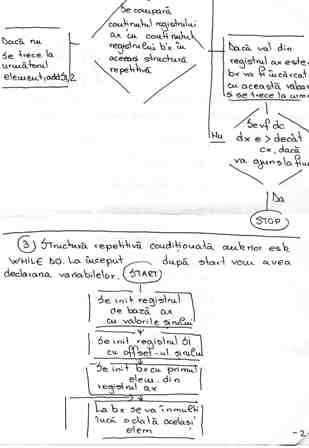 Se compară
conținutul registrului
ax cu conținutul
registrului bx în
aceeași structură
repetitivă
Dacă nu
se trece la
următorul
element, add si, 2
Dacă val din
registrul ax este
bx va fi încărcat
cu această valoa
și se trece la urm
Nu
Se vf dc
dx e > decât
cx, dacă
va ajuns la fin
Da
STOP
③ Structura repetitivă condiționată anterior este
WHILE DO. La început după start vom avea
declararea variabilelor. START
Se init registrul
de bază ax
cu valorile șirului
Se init registrul si
cu offset-ul șirului
Se init bx cu primul
elem. din
registrul ax
La bx se va înmulți
încă odată același
elem
-2-